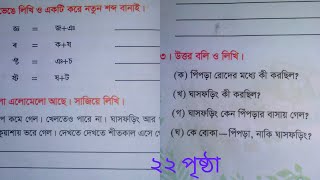 ভেঙে লিখি ও একটি করে নতুন শব্দ বানাই।
জ্ঞ = জ+ঞ
ক্ষ = ক+ষ
ঞ্চ = ঞ+চ
ষ্ট = ষ+ট
এলোমেলো আছে। সাজিয়ে লিখি।
কমে গেল। খেলতেও পারে না। ঘাসফড়িং আর
কুয়াশায় ভরে গেল। দেখতে দেখতে শীতকাল এসে
৩। উত্তর বলি ও লিখি।
(ক) পিঁপড়া রোদের মধ্যে কী করছিল?
(খ) ঘাসফড়িং কী করছিল?
(গ) ঘাসফড়িং কেন পিঁপড়ার বাসায় গেল?
(ঘ) কে বোকা—পিঁপড়া, নাকি ঘাসফড়িং?
২২ পৃষ্ঠা